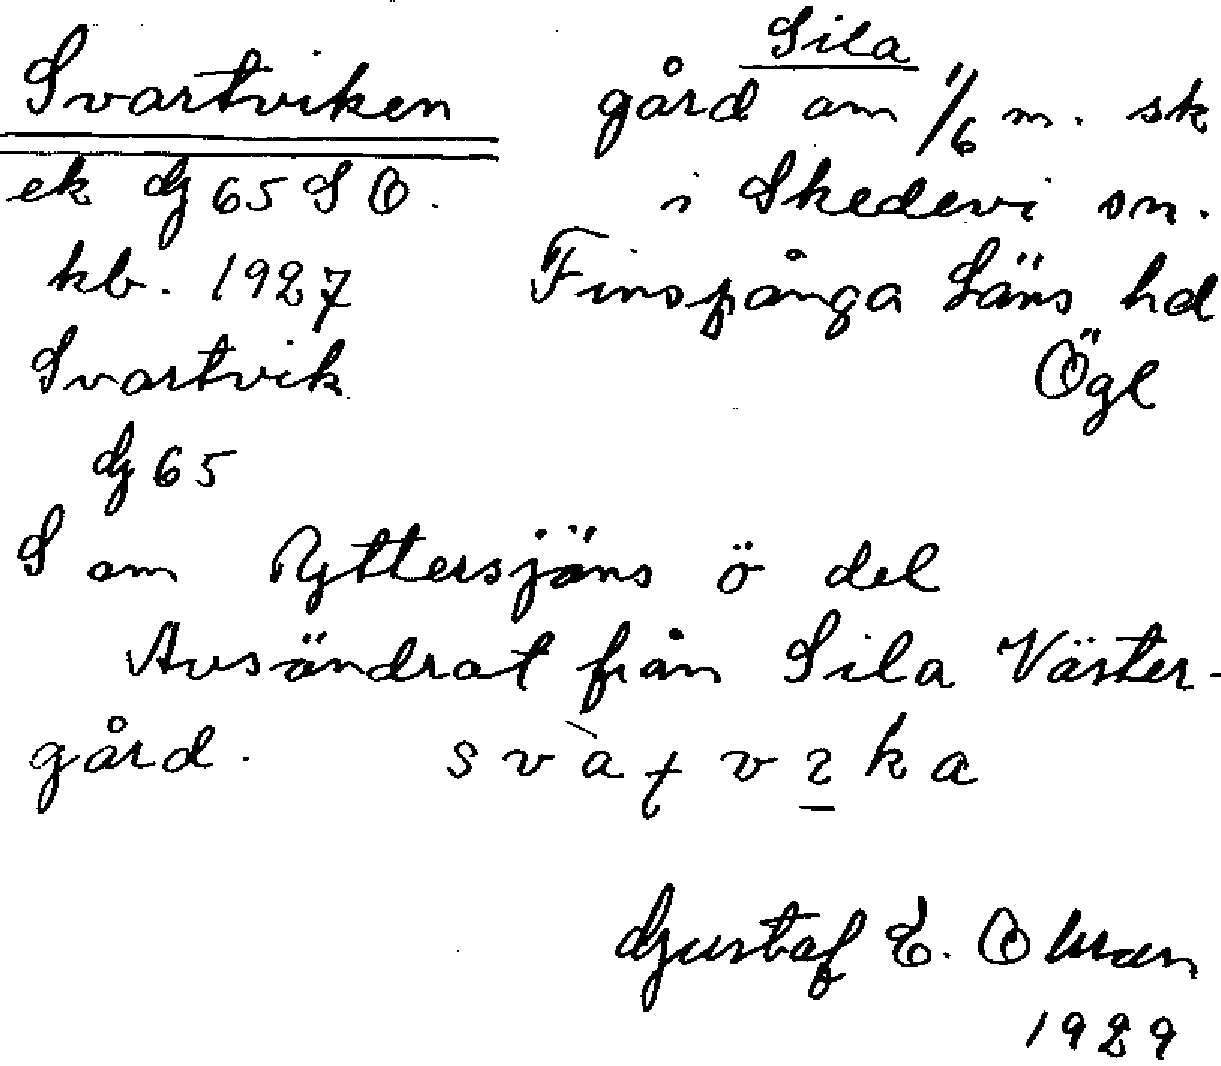 Svartviken
ek G 65 S O.
kb. 1927
Svartvik
G 65
Sila
gård om 1/6 m. sk
i Skedevi sn.
Finspånga Läns hd
Ögl
S om Yttersjöns ö del
Avsöndrat från Sila Väster-
gård.
Gustaf E. Oman
1929